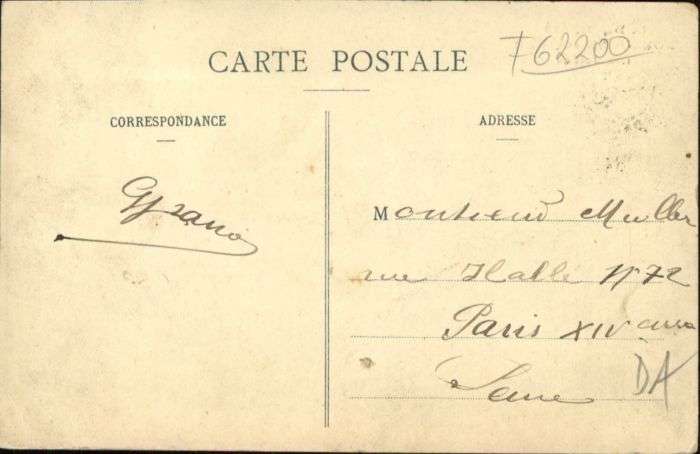 CARTE POSTALE
62200
CORRESPONDANCE
ADRESSE
Monsieur Muller
rue Hallé N° 72
Paris XIV
Seine
DA